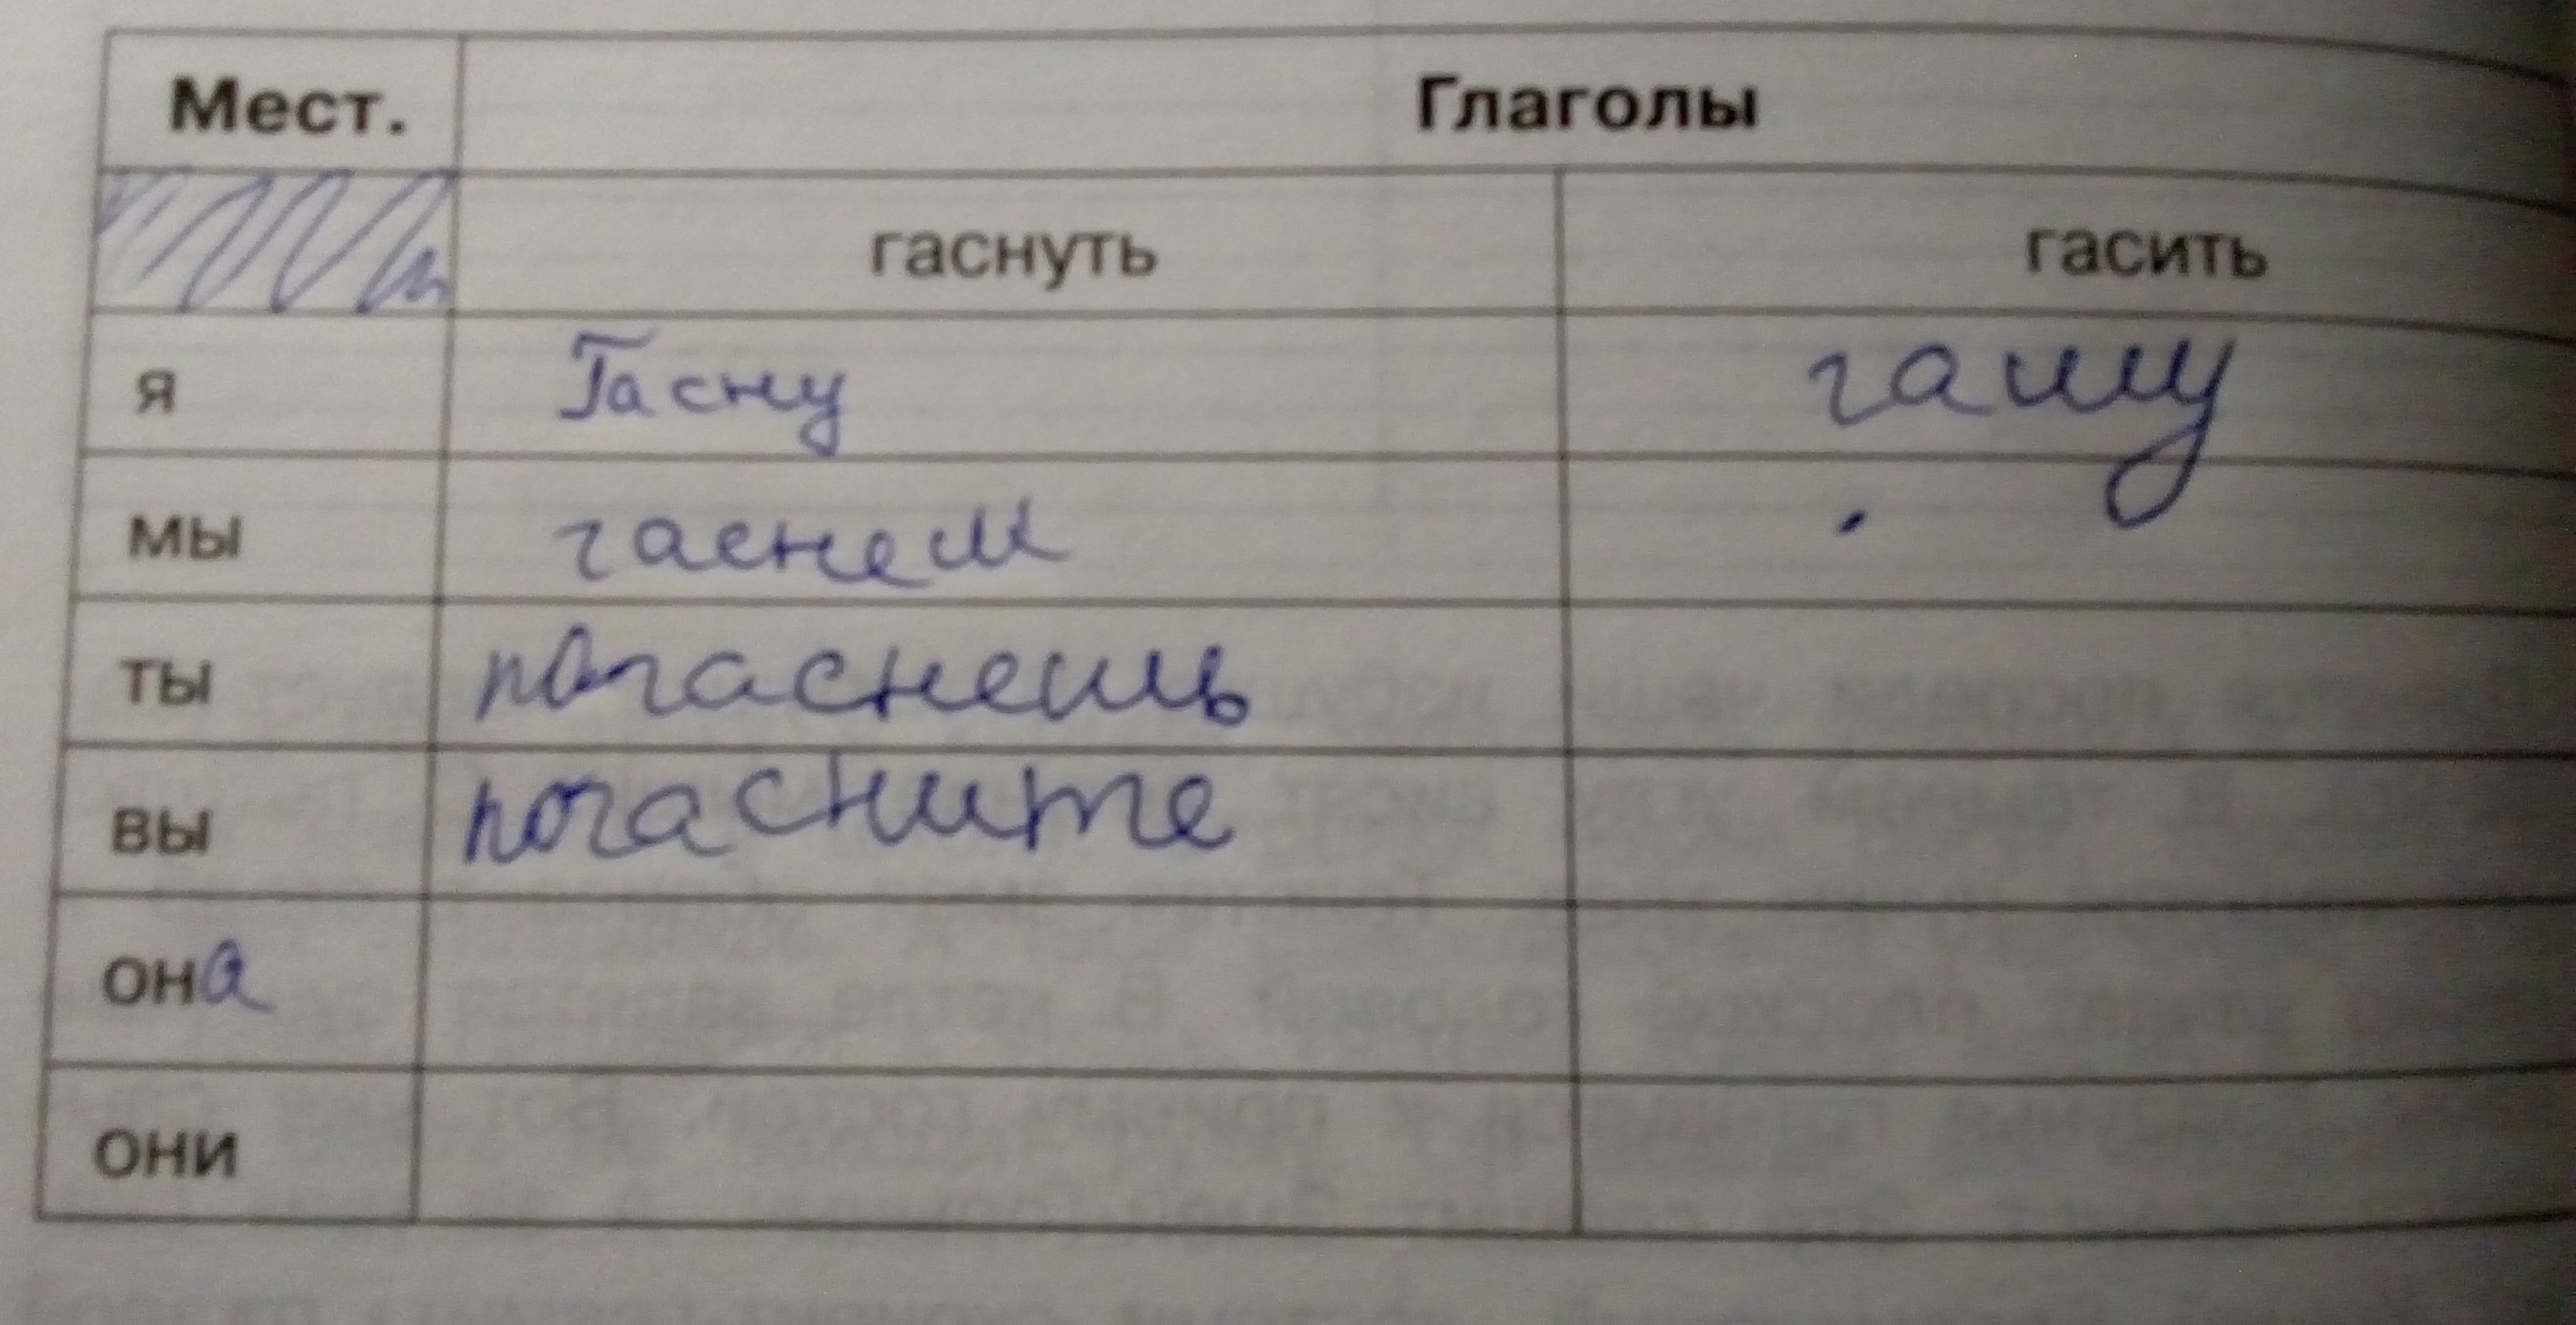 Мест. Глаголы
гаснуть гасить
я Гасну гашу
мы гаснем
ты погаснешь
вы погасните
она
они